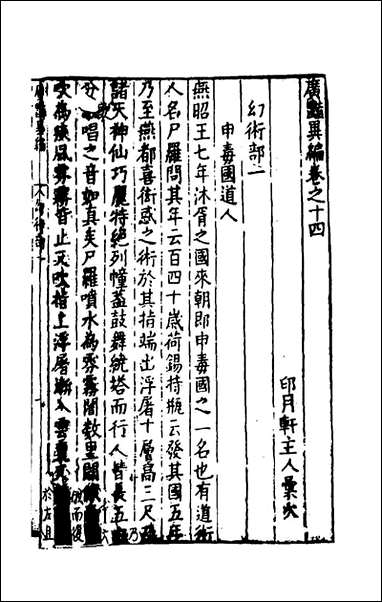 廣豔異編卷之十四
印月軒主人彙次
幻術部一
申毒國道人
燕昭王七年沐胥之國來朝即申毒國之一名也有道術
人名尸羅問其年云百四十歲荷錫持瓶云發其國五年
乃至燕都喜衒惑之術於其指端出浮屠十層高三尺
諸天神仙巧麗特絕列幢蓋鼓舞繞塔而行人皆長五
歌唱之音如真矣尸羅噴水為雰霧闇數里間
吹為疾風雰霧皆止又吹指上浮屠漸入雲